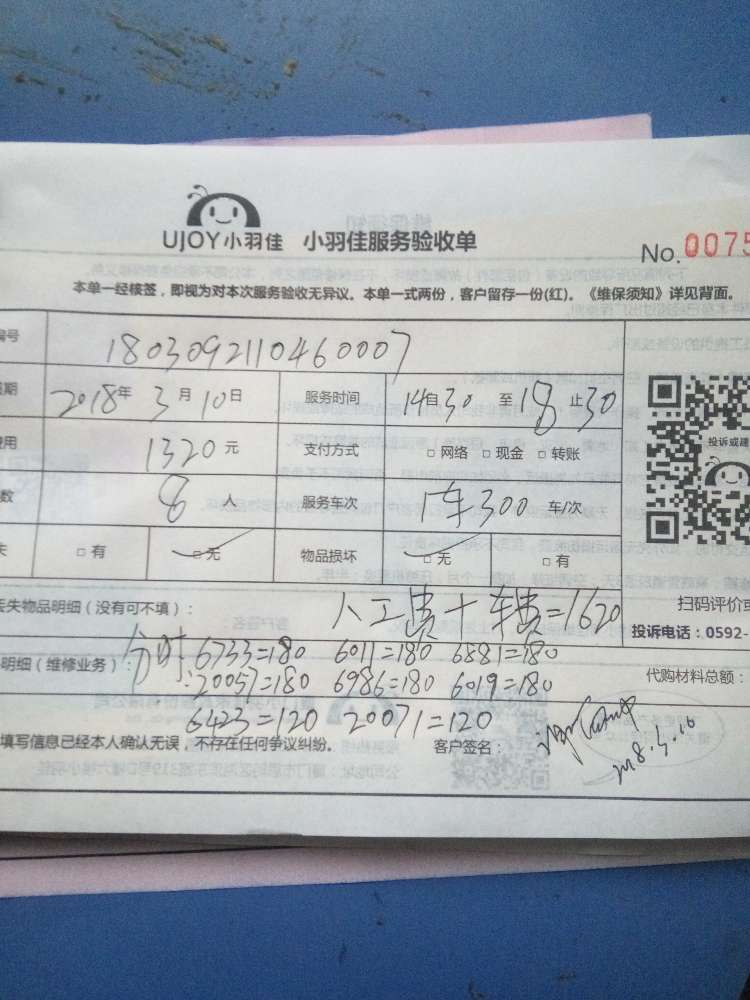 UJOY小羽佳 小羽佳服务验收单
No.0075
本单一经核签，即视为对本次服务验收无异议。本单一式两份，客户留存一份(红)。《维保须知》详见背面。
编号 1803092110460007
期 2018年3月10日 服务时间 14自30 至18止30
用 1320元 支付方式 □ 网络 □ 现金 □ 转账
投诉或建
数 8人 服务车次 1车300 车/次
失 □ 有 □ 无 物品损坏 □ 无 □ 有
丢失物品明细（没有可不填）： 人工费+车费=1620
扫码评价或
投诉电话：0592-
明细（维修业务）： 分时: 6733=180 6011=180 6881=180
代购材料总额：
:20057=180 6986=180 6019=180
6423=120 20071=120
填写信息已经本人确认无误，不存在任何争议纠纷。 客户签名：
2018.3.10